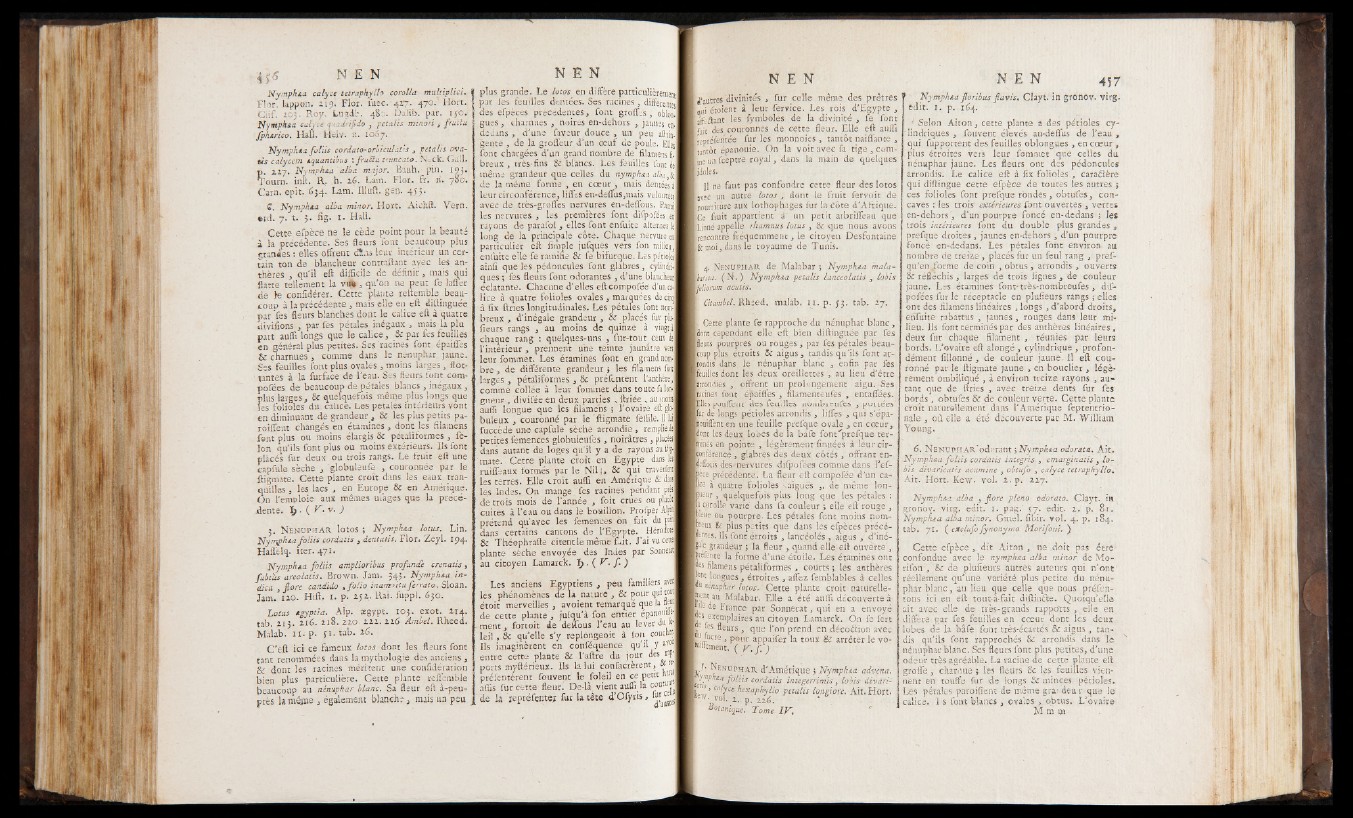 456 NEN
Nymphæa calyce tetraphyllo corolla multiplici.
Flor. lappon. 219. Flor. suec. 427. 470. Hort.
Clif. 203. Roy. Lugdb. 481. Dalib. par. 150.
Nymphæa calyce quadrifido, petalis minori, fructu
sphærico. Hall. Helv. n. 1067.
Nymphæa foliis cordato-orbiculatis, petalis ova-
tis calycem æquantibus : fructu truncato. Neck. Gall.
p. 227. Nymphæa alba major. Bauh. pin. 193.
Tourn. inst. R. h. 26. Lam. Flor. fr. n. 786.
Garn. epit. 634. Lam. Illust. gen. 453.
C. Nymphæa alba minor. Hort. Aichst. Vern.
ord. 7. t. 3. fig. 1. Hall.
Cette espèce ne le cède point pour la beauté
à la précédente. Ses fleurs sont beaucoup plus
grandes : elles offrent dans leur intérieur un cer-
tain ton de blancheur contrastant avec les an-
thères, qu'il est difficile de définir, mais qui
flatte tellement la vue, qu'on ne peut se lasser
de le considérer. Cette plante ressemble beau-
coup à la précédente, mais elle en est distinguée
par ses fleurs blanches dont le calice est à quatre
divisions, par ses pétales inégaux, mais la plu-
part aussi longs que le calice, & par ses feuilles
en général plus petites. Ses racines sont épaisses
& charnues, comme dans le nénuphar jaune.
Ses feuilles sont plus ovales, moins larges, flot-
tantes à la surface de l'eau. Ses fleurs sont com-
posées de beaucoup de pétales blancs, inégaux,
plus larges, & quelquefois même plus longs que
les folioles du calice. Les pétales intérieurs vont
en diminuant de grandeur, & les plus petits pa-
roissent changés en étamines, dont les filamens
sont plus ou moins élargis & pétaliformes, se-
lon qu'ils sont plus ou moins extérieurs. Ils sont
placés sur deux ou trois rangs. Le fruit est une
capsule sèche, globuleuse, couronnée par le
stigmate. Cette plante croît dans les eaux tran-
quilles, les lacs, en Europe & en Amérique.
On l'emploie aux mêmes usages que la précé-
dente. ♃. ( V. v. )
3. NENUPHAR lotos ; Nymphea lotus. Lin.
Nymphæa foliis cordatis, dentatis. Flor. Zeyl. 194.
Hasselq. iter. 471.
Nymphæa foliis amplioribus profunde crenatis,
subtus areolatis. Brown. Jam. 343. Nymphæa in-
dica, flore candido, folio inambitu serrato. Sloan.
Jam. 120. Hist. 1. p. 252. Rai. suppl. 630.
Lotus ægyptia. Alp. ægypt. 103. exot. 214.
tab. 213. 216. 218. 220 222. 226 Ambel. Rheed.
Malab. 11. p. 51. tab. 26.
C'est ici ce fameux lotos dont les fleurs sont
tant renommées dans la mythologie des anciens,
& dont les racines méritent une considération
bien plus particulière. Cette plante ressemble
beaucoup au nénuphar blanc. Sa fleur est à-peu-
près la même, également blanche, mais un peu
NEN
plus grande. Le lotos en diffère particulièrement
par ses feuilles dentées. Ses racines, différentes
des espèces précédentes, sont grosses, oblon-
gues, charnues, noires en-dehors, jaunes en-
dedans, d'une saveur douce, un peu astrin-
gente, de la grosseur d'un œuf de poule. Elles
sont chargées d'un grand nombre de filamens
breux, très fins & blancs. Les feuilles sont de
même grandeur que celles du nymphæa alba, &
de la même forme, en cœur, mais dentées à
leur circonférence, lisses en-dessus, mais
avec de très-grosses nervures en-dessous. Parmi
les nervures, les premières sont disposées en
rayons de parasol, elles sont ensuite alternes le
long de la principale côte. Chaque nervure en
particulier est simple jusques vers son milieu,
ensuite elle se ramifie & se bifurque. Les pétioles
ainsi que les pédoncules sont glabres, cylindri-
ques ; ses fleurs sont odorantes, d'une blancheur
éclatante. Chacune d'elles est composée d'un ca-
lice à quatre folioles ovales, marquées de cinq
à six stries longitudinales. Les pétales sont nom-
breux, d'inégale grandeur, & placés sur plu-
sieurs rangs, au moins de quinze à vingt à
chaque rang : quelques-uns, sur-tout ceux de
l'intérieur, prennent une teinte jaunâtre vers
leur sommet. Les étamines sont en grand nom-
bre, de différente grandeur ; les filamens sont
larges, pétaliformes, & présentent l'anthère,
comme collée à leur sommet dans toute sa lon-
gueur, divisée en deux parties, striée, au moins
aussi longue que les filamens ; l'ovaire est glo-
buleux, couronné par le stigmate sessile. Il lui
succède une capsule sèche arrondie, remplie de
petites semences globuleuses, noirâtres, placées
dans autant de loges qu'il y a de rayons au stig-
mate. Cette plante croît en Egypte dans les
ruisseaux formés par le Nil, & qui traversent
les terres. Elle croît aussi en Amérique & dans
les Indes. On mange ses racines pendant près
de trois mois de l'année, soit crues ou plutôt
cuites à l'eau ou dans le bouillon. Prosper Alpin
prétend qu'avec les semences on fait du pain
dans certains cantons de l'Egypte. Hérodote
& Théophraste citent le même fait. J'ai vu cette
plante sèche envoyée des Indes par Sonnerat
au citoyen Lamarck. ♃. ( V. s. )
Les anciens Egyptiens, peu familiers avec
les phénomènes de la nature, & pour qui tout
étoit merveilles, avoient remarqué que la fleur
de cette plante, jusqu'à son entier épanouisse-
ment, sortoit de dessous l'eau au lever du so-
leil, & qu'elle s'y replongeoit à son coucher.
Ils imaginèrent en conséquence qu'il y avoit
entre cette plante & l'astre du jour des rap-
ports mystérieux. Ils la lui consacrèrent, & re-
présentèrent souvent le soleil en ce
assis sur cette fleur. De-là vient aussi la coutume
de la représenter sur la tête d'Osyris, sur celle
d'autres
NEN
d'autres divinités, sur celle même des prêtres
qui étoient à leur service. Les rois d'Egypte,
affectant les symboles de la divinité, se sont
fait des couronnes de cette fleur. Elle est aussi
représentée sur les monnoies, tantôt naissante,
tantôt épanouie. On la voit avec sa tige, com-
me un sceptre royal, dans la main de quelques
idoles.
Il ne faut pas confondre cette fleur des lotos
avec un autre lotos, dont le fruit servoit de
nourriture aux lothophages sur la côte d'Afrique.
Ce fruit appartient à un petit arbrisseau que
Linné appelle rhamnus lotus, & que nous avons
rencontré fréquemment, le citoyen Desfontaine
& moi, dans le royaume de Tunis.
4. NENUPHAR de Malabar ; Nymphea mala-
barica. (N.) Nymphæa petalis lanceolatis, lobis
foliorum acutis.
Citambel. Rheed. malab. 11. p. 53. tab. 27.
Cette plante se rapproche du nénuphar blanc,
dont cependant elle est bien distinguée par ses
fleurs pourpres ou rouges, par ses pétales beau-
coup plus étroits & aigus, tandis qu'ils sont ar-
rondis dans le nénuphar blanc, enfin par ses
feuilles dont les deux oreillettes, au lieu d'être
arrondies, offrent un prolongement aigu. Ses
racines sont épaisses, filamenteuses, entassées.
Elles poussent des feuilles nombreuses, portées
sur de longs pétioles arrondis, lisses, qui s'épa-
nouissent en une feuille presque ovale, en cœur,
dont les deux lobes de la base sont presque ter-
minés en pointe, légèrement sinuées à leur cir-
conférence, glabres des deux côtés, offrant en-
dessous des nervures disposées comme dans l'es-
pèce précédente. La fleur est composée d'un ca-
lice à quatre folioles aiguës, de même lon-
gueur, quelquefois plus long que les pétales :
la corolle varie dans sa couleur ; elle est rouge,
bleue ou pourpre. Les pétales sont moins nom-
breux & plus petits que dans les espèces précé-
dentes. Ils sont étroits, lancéolés, aigus, d'iné-
gale grandeur ; la fleur, quand elle est ouverte,
présente la forme d'une étoile. Les étamines ont
des filamens pétaliformes, courts ; les anthères
sont longues, étroites, assez semblables à celles
du nénuphar lotus. Cette plante croît naturelle-
ment au Malabar. Elle a été aussi découverte à
l'île de France par Sonnerat, qui en a envoyé
des exemplaires au citoyen Lamarck. On se sert
de ses fleurs, que l'on prend en décoction avec
du sucre, pour appaiser la toux & arrêter le vo-
missement. ( V. s. )
5. NENUPHAR d'Amérique ; Nymphea advena.
Nymphæa foliis cordatis integerrimis, lobis devari-
catis, calyce hexaphyllo petalis longiore. Ait. Hort.
Kew. vol. 2. p. 226.
Botanique. Tome IV.
NEN 457
Nymphæa floribus flavis. Clayt. in gronov. virg.
edit. 1. p. 164.
Selon Aiton, cette plante a des pétioles cy-
lindriques, souvent élevés au-dessus de l'eau,
qui supportent des feuilles oblongues, en cœur,
plus étroites vers leur sommet que celles du
nénuphar jaune. Les fleurs ont des pédoncules
arrondis. Le calice est à six folioles, caractère
qui distingue cette espèce de toutes les autres ;
ces folioles sont presque rondes, obtuses, con-
caves : les trois extérieures sont ouvertes, vertes
en-dehors, d'un pourpre foncé en-dedans ; les
trois intérieures sont du double plus grandes,
presque droites, jaunes en-dehors, d'un pourpre
foncé en-dedans. Les pétales sont environ au
nombre de treize, placés sur un seul rang, pres-
qu'en forme de coin, obtus, arrondis, ouverts
& réfléchis, larges de trois lignes, de couleur
jaune. Les étamines sont très-nombreuses, dis-
posées sur le réceptacle en plusieurs rangs ; elles
ont des filamens linéaires, longs, d'abord droits,
ensuite rabattus, jaunes, rouges dans leur mi-
lieu. Ils sont terminés par des anthères linéaires,
deux sur chaque filament, réunies par leurs
bords. L'ovaire est alongé, cylindrique, profon-
dément sillonné, de couleur jaune. Il est cou-
ronné par le stigmate jaune, en bouclier, légè-
rement ombiliqué, à environ treize rayons, au-
tant que de stries, avec treize dents sur ses
bords, obtuses & de couleur verte. Cette plante
croît naturellement dans l'Amérique septentrio-
nale, où elle a été découverte par M. William
Young.
6. NENUPHAR odorant ; Nymphea odorata. Ait.
Nymphæa foliis cordatis integris, emarginatis, lo-
bis divaricatis acumine, obtuso, calyce tetraphyllo.
Ait. Hort. Kew. vol. 2. p. 227.
Nymphæa alba, flore pleno odorato. Clayt. in
gronov. virg. edit. 1. pag. 57. edit. 2. p. 81.
Nymphæa alba minor. Gmel. sibir. vol. 4. p. 184.
tab. 71. ( excluso synonymo Morisoni. )
Cette espèce, dit Aiton, ne doit pas être
confondue avec le nymphæa alba minor de Mo-
rison, & de plusieurs autres auteurs qui n'ont
réellement qu'une variété plus petite du nénu-
phar blanc, au lieu que celle que nous présen-
tons ici en est tout-à-fait distincte. Quoiqu'elle
ait avec elle de très-grands rapports, elle en
diffère par ses feuilles en cœur dont les deux
lobes de la base sont très-écartés & aigus, tan-
dis qu'ils sont rapprochés & arrondis dans le
nénuphar blanc. Ses fleurs sont plus petites, d'une
odeur très agréable. La racine de cette plante est
grosse, charnue ; les fleurs & les feuilles vien-
nent en touffe sur de longs & minces pétioles.
Les pétales paroissent de même grandeur que le
calice. Ils sont blancs, ovales, obtus. L'ovaire
M m m